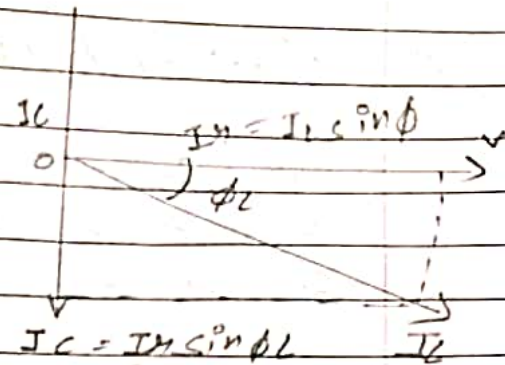 Ic
Ir = IL sinϕ
V
O
ϕL
Ic = Ir sinϕL
IL